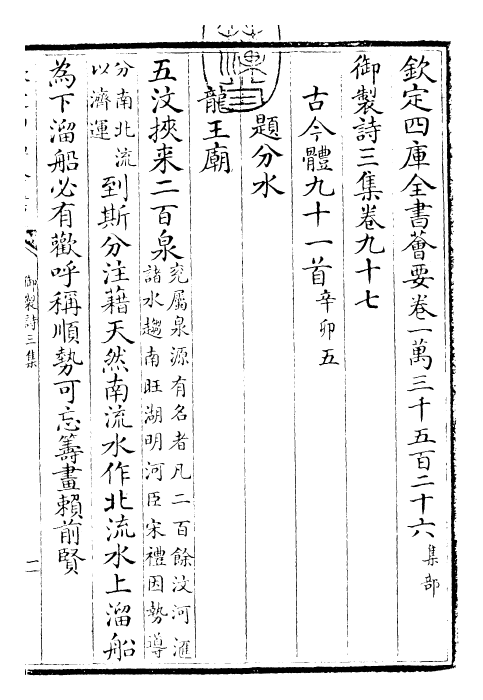 欽定四庫全書薈要卷一萬三千五百二十六 集部
御製詩三集卷九十七
古今體九十一首 辛卯五
題分水
龍王廟
五汶挾来二百泉 兖屬泉源有名者凡二百餘汶河滙
諸水趨南旺湖明河臣宋禮因勢導
分南北流
以濟運
到斯分注藉天然南流水作北流水上溜船
為下溜船必有歡呼稱順勢可忘籌畫賴前賢
御製詩三集
一